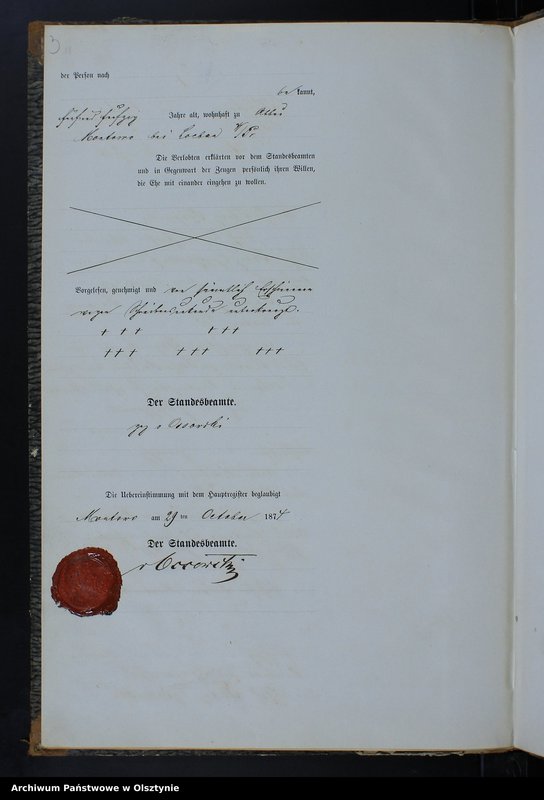 3
der Person nach
be kannt,
fünfund fünfzig Jahre alt, wohnhaft zu
Montowo bei W/Pr
Die Verlobten erklärten vor dem Standesbeamten
und in Gegenwart der Zeugen persönlich ihren Willen,
die Ehe mit einander eingehen zu wollen.
Vorgelesen, genehmigt und von sämmtlich Erschienenen
wegen Schreibensunkunde unterkreuzt.
+ + + + + +
+ + + + + + + + +
Der Standesbeamte.
gez v Ossowski
Die Uebereinstimmung mit dem Hauptregister beglaubigt
Montowo am 29 ten October 1874
Der Standesbeamte.
v Ossowski
Archiwum Państwowe w Olsztynie